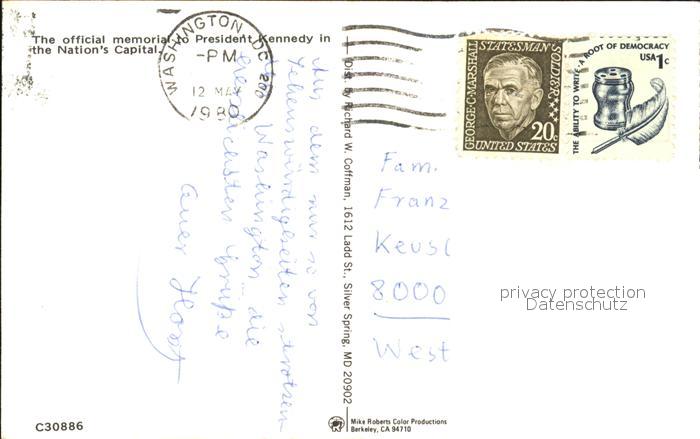 The official memorial to President Kennedy in
the Nation's Capital.
WASHINGTON DC 200
-PM-
12 MAY
198
GEORGE C. MARSHALL
STATESMAN SOLDIER
20c
UNITED STATES
THE ABILITY TO WRITE · A ROOT OF DEMOCRACY
USA 1c
Aus dem nur so von
Sehenswürdigkeiten strotzen
Washington die
herzlichsten Grüße
Euer Horst
Dist. by Richard W. Coffman, 1612 Ladd St., Silver Spring, MD 20902
Fam.
Franz
8000
West
privacy protection
Datenschutz
C30886
Mike Roberts Color Productions
Berkeley, CA 94710